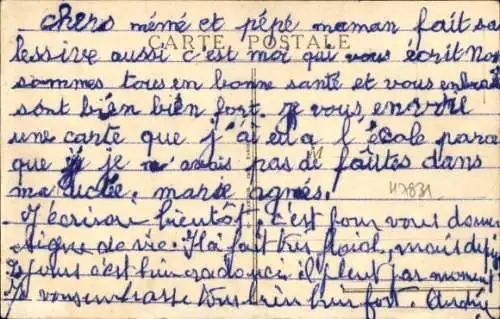 chers mémé et pépé maman fait sa
CARTE POSTALE
lessive aussi c'est moi qui vous écrit Nous
sommes tous en bonne santé et vous embras
sont bien bien fort. je vous envoie
une carte que j'ai eu a l'école parce
que je n'avais pas de faites dans
ma dictée. marie agnés.
47831
J'écrirai bientôt. c'est pour vous donner
signe de vie. Il a fait très froid, mais
c'est il pleut par moment
Je vous embrasse tous bien bien fort. André